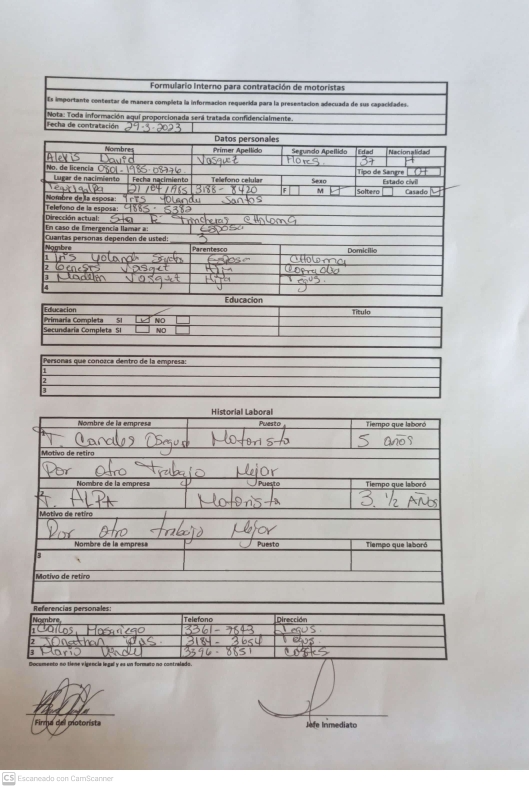 Formulario Interno para contratación de motoristas
Es importante contestar de manera completa la informacion requerida para la presentacion adecuada de sus capacidades.
Nota: Toda información aquí proporcionada será tratada confidencialmente.
Fecha de contratación 29-3-2023
Datos personales
Nombres Primer Apellido Segundo Apellido Edad Nacionalidad
Alexis David Vasquez Flores. 37 H
No. de licencia 0801-1985-08776 Tipo de Sangre OT
Lugar de nacimiento Fecha nacimiento Telefono celular Sexo Estado civil
21/04/1985 3188-8420 F M Soltero Casado
Nombre de la esposa: Iris Yolanda Santos
Telefono de la esposa: 9885-5382
Dirección actual: Sta Trincheras CHoloma
En caso de Emergencia llamar a: Esposa
Cuantas personas dependen de usted: 3
Nombre Parentesco Domicilio
1 Iris Yolanda Santos Esposa CHoloma
2 Genesis Vasquez Hija
3 Madelin Vasquez Hija Tegus.
4
Educacion
Educacion Titulo
Primaria Completa SI NO
Secundaria Completa SI NO
Personas que conozca dentro de la empresa:
1
2
3
Historial Laboral
Nombre de la empresa Puesto Tiempo que laboró
T. Canales Oseguera Motorista 5 años
Motivo de retiro
Por otro trabajo Mejor
Nombre de la empresa Puesto Tiempo que laboró
T. ALPA Motorista 3. 1/2 AÑos
Motivo de retiro
Por otro trabajo Mejor
Nombre de la empresa Puesto Tiempo que laboró
3
Motivo de retiro
Referencias personales:
Nombre, Telefono Dirección
1 Carlos 3361-7843 Tegus.
2 Jonathan 3184-3654 Tegus.
3 Mario 3396-8851 Cortes
Documento no tiene vigencia legal y es un formato no controlado.
Firma del motorista Jefe Inmediato
CS Escaneado con CamScanner